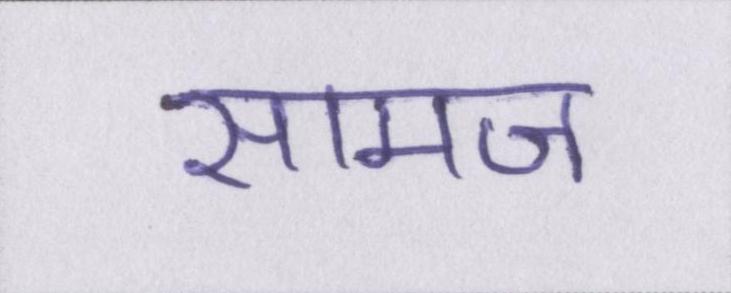 सामज